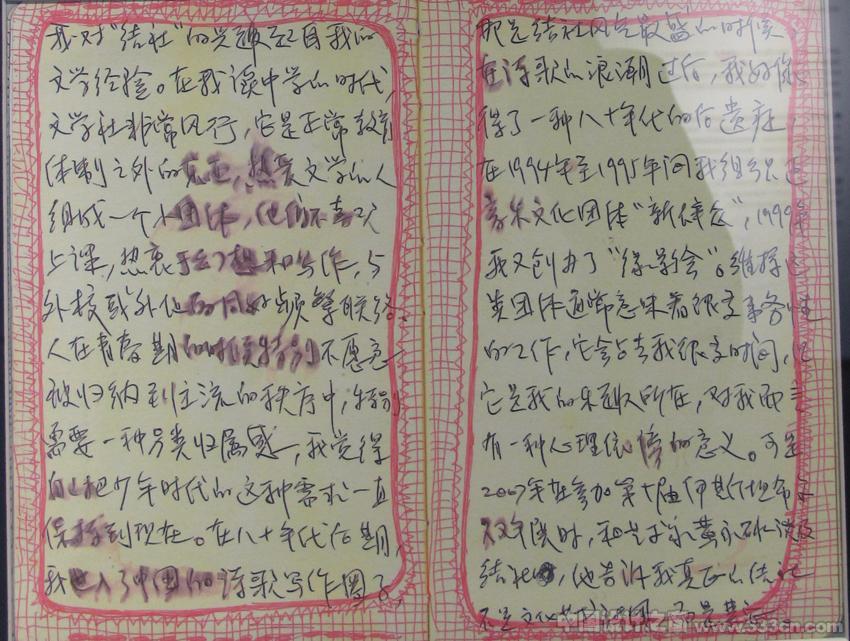 我对“结社”的兴趣缘自我的
文学经验。在我读中学的时代,
文学社非常风行,它是正常教育
体制之外的,热爱文学的人
组成一个小团体,他们不喜欢
上课,热衷于幻想和写作,与
外校或外地的同好频繁联络。
人在青春期的时候特别不愿意
被归纳到主流的秩序中,特别
需要一种另类归属感,我觉得
自己把少年时代的这种需求一直
保持到现在。在八十年代后期,
我进入了中国的诗歌写作圈子,
那是结社风气最盛的时候
在诗歌的浪潮过后,我好像
得了一种八十年代的后遗症,
在1994年至1995年间我组织过
文化团体“新信念”,1999年
我又创办了“缘影会”。维持这
类团体通常意味着很多事务性
的工作,它会占去我很多时间,但
它是我的乐趣所在,对我而言
有一种心理依傍的意义。可是
2007年在参加第十届伊斯坦布尔
双年展时,和艺术家黄永砯谈及
结社,他告诉我真正的结社
不是文化
www.333cn.com